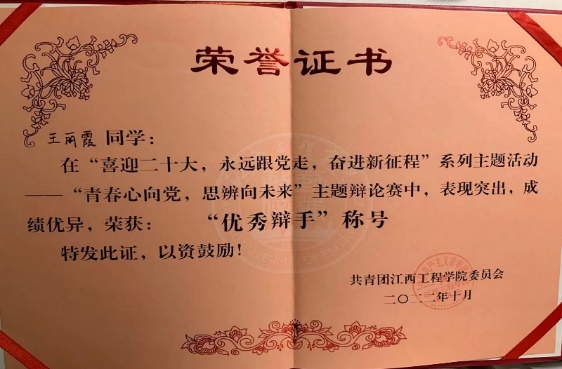 荣誉证书
王丽霞 同学：
在“喜迎二十大，永远跟党走，奋进新征程”系列主题活动
——“青春心向党，思辨向未来”主题辩论赛中，表现突出，成
绩优异，荣获： “优秀辩手”称号
特发此证，以资鼓励！
共青团江西工程学院委员会
二〇二二年十月